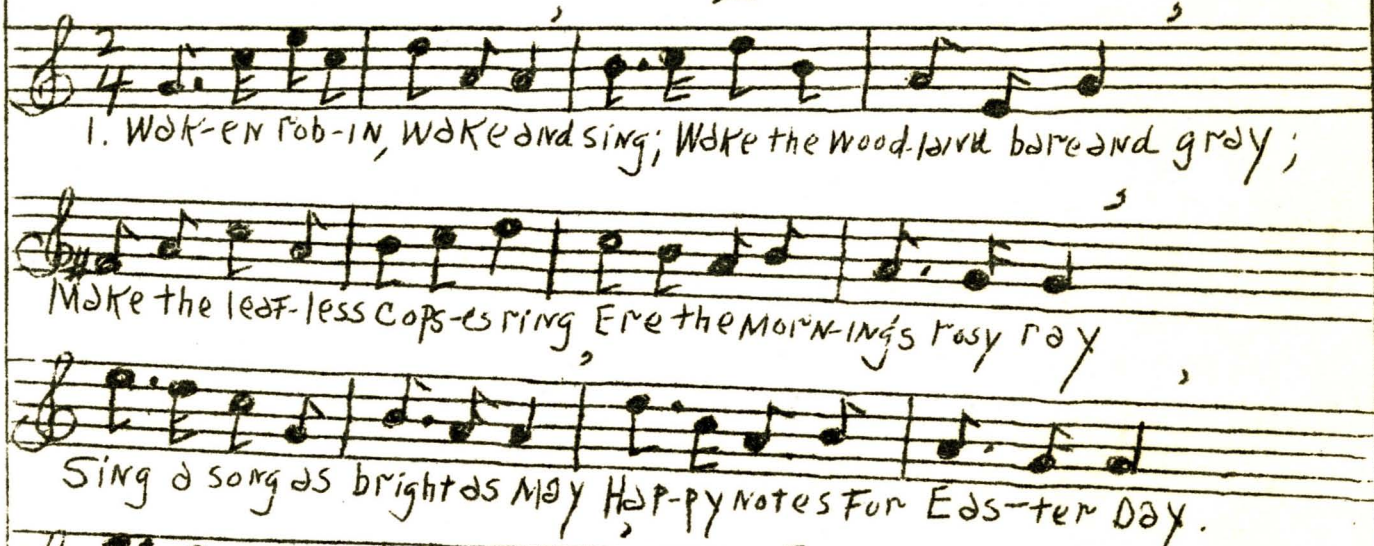 2
4
1. Wak-en rob-in, wake and sing; Wake the wood-land bare and gray;
Make the leaf-less cops-es ring Ere the morn-ing's rosy ray
Sing a song as bright as May Hap-py notes For Eas-ter Day.